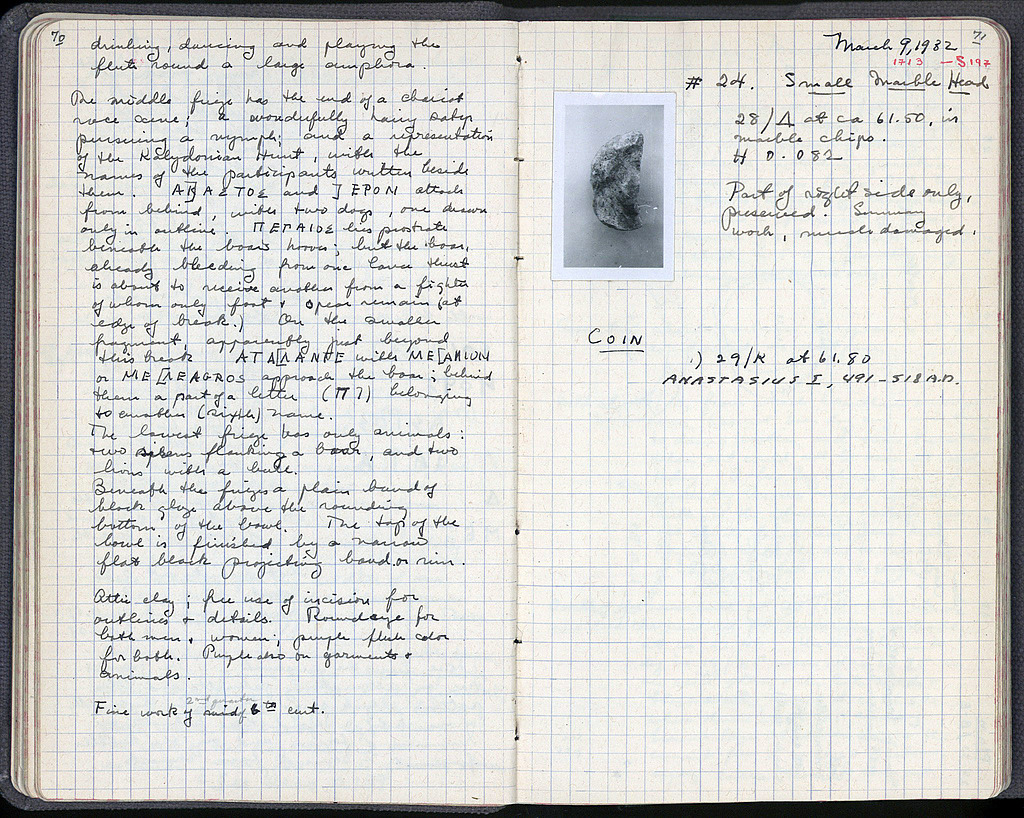 70
drinking, dancing and playing the
flute round a large amphora.
The middle frieze has the end of a chariot
race scene; a wonderfully hairy satyr
pursuing a nymph; and a representation
of the Kalydonian Hunt, with the
names of the participants written beside
them. and ΙΕΡΟΝ attack
from behind, with two dogs, one drawn
only in outline. ΠΕΓΑΙΟΣ lies prostrate
beneath the boar's hooves; but the boar,
already bleeding from one lance thrust
is about to receive another from a fighter
of whom only foot & spear remain (at
edge of break.) On the smaller
fragment, apparently just beyond
this break with
or approach the boar; behind
them a part of a letter (Π?) belonging
to another (sixth) name.
The lowest frieze has only animals:
two flanking a boar, and two
lions with a bull.
Beneath the friezes a plain band of
black glaze above the rounding
bottom of the bowl. The top of the
bowl is finished by a narrow
flat black projecting band or rim.
Attic clay; free use of incision for
outlines & details. Round eye for
both men & women; purple flesh color
for both. Purple also on garments &
animals.
2nd quarter
Fine work of mid 6th cent.
71
March 9, 1932
1713 – S 197
# 24. Small Marble Head
28/Δ at ca 61.50, in
marble chips.
H 0.082
Part of right side only,
preserved. Summary
work, much damaged.
COIN
1) 29/K at 61.80
ANASTASIUS I, 491–518 A.D.